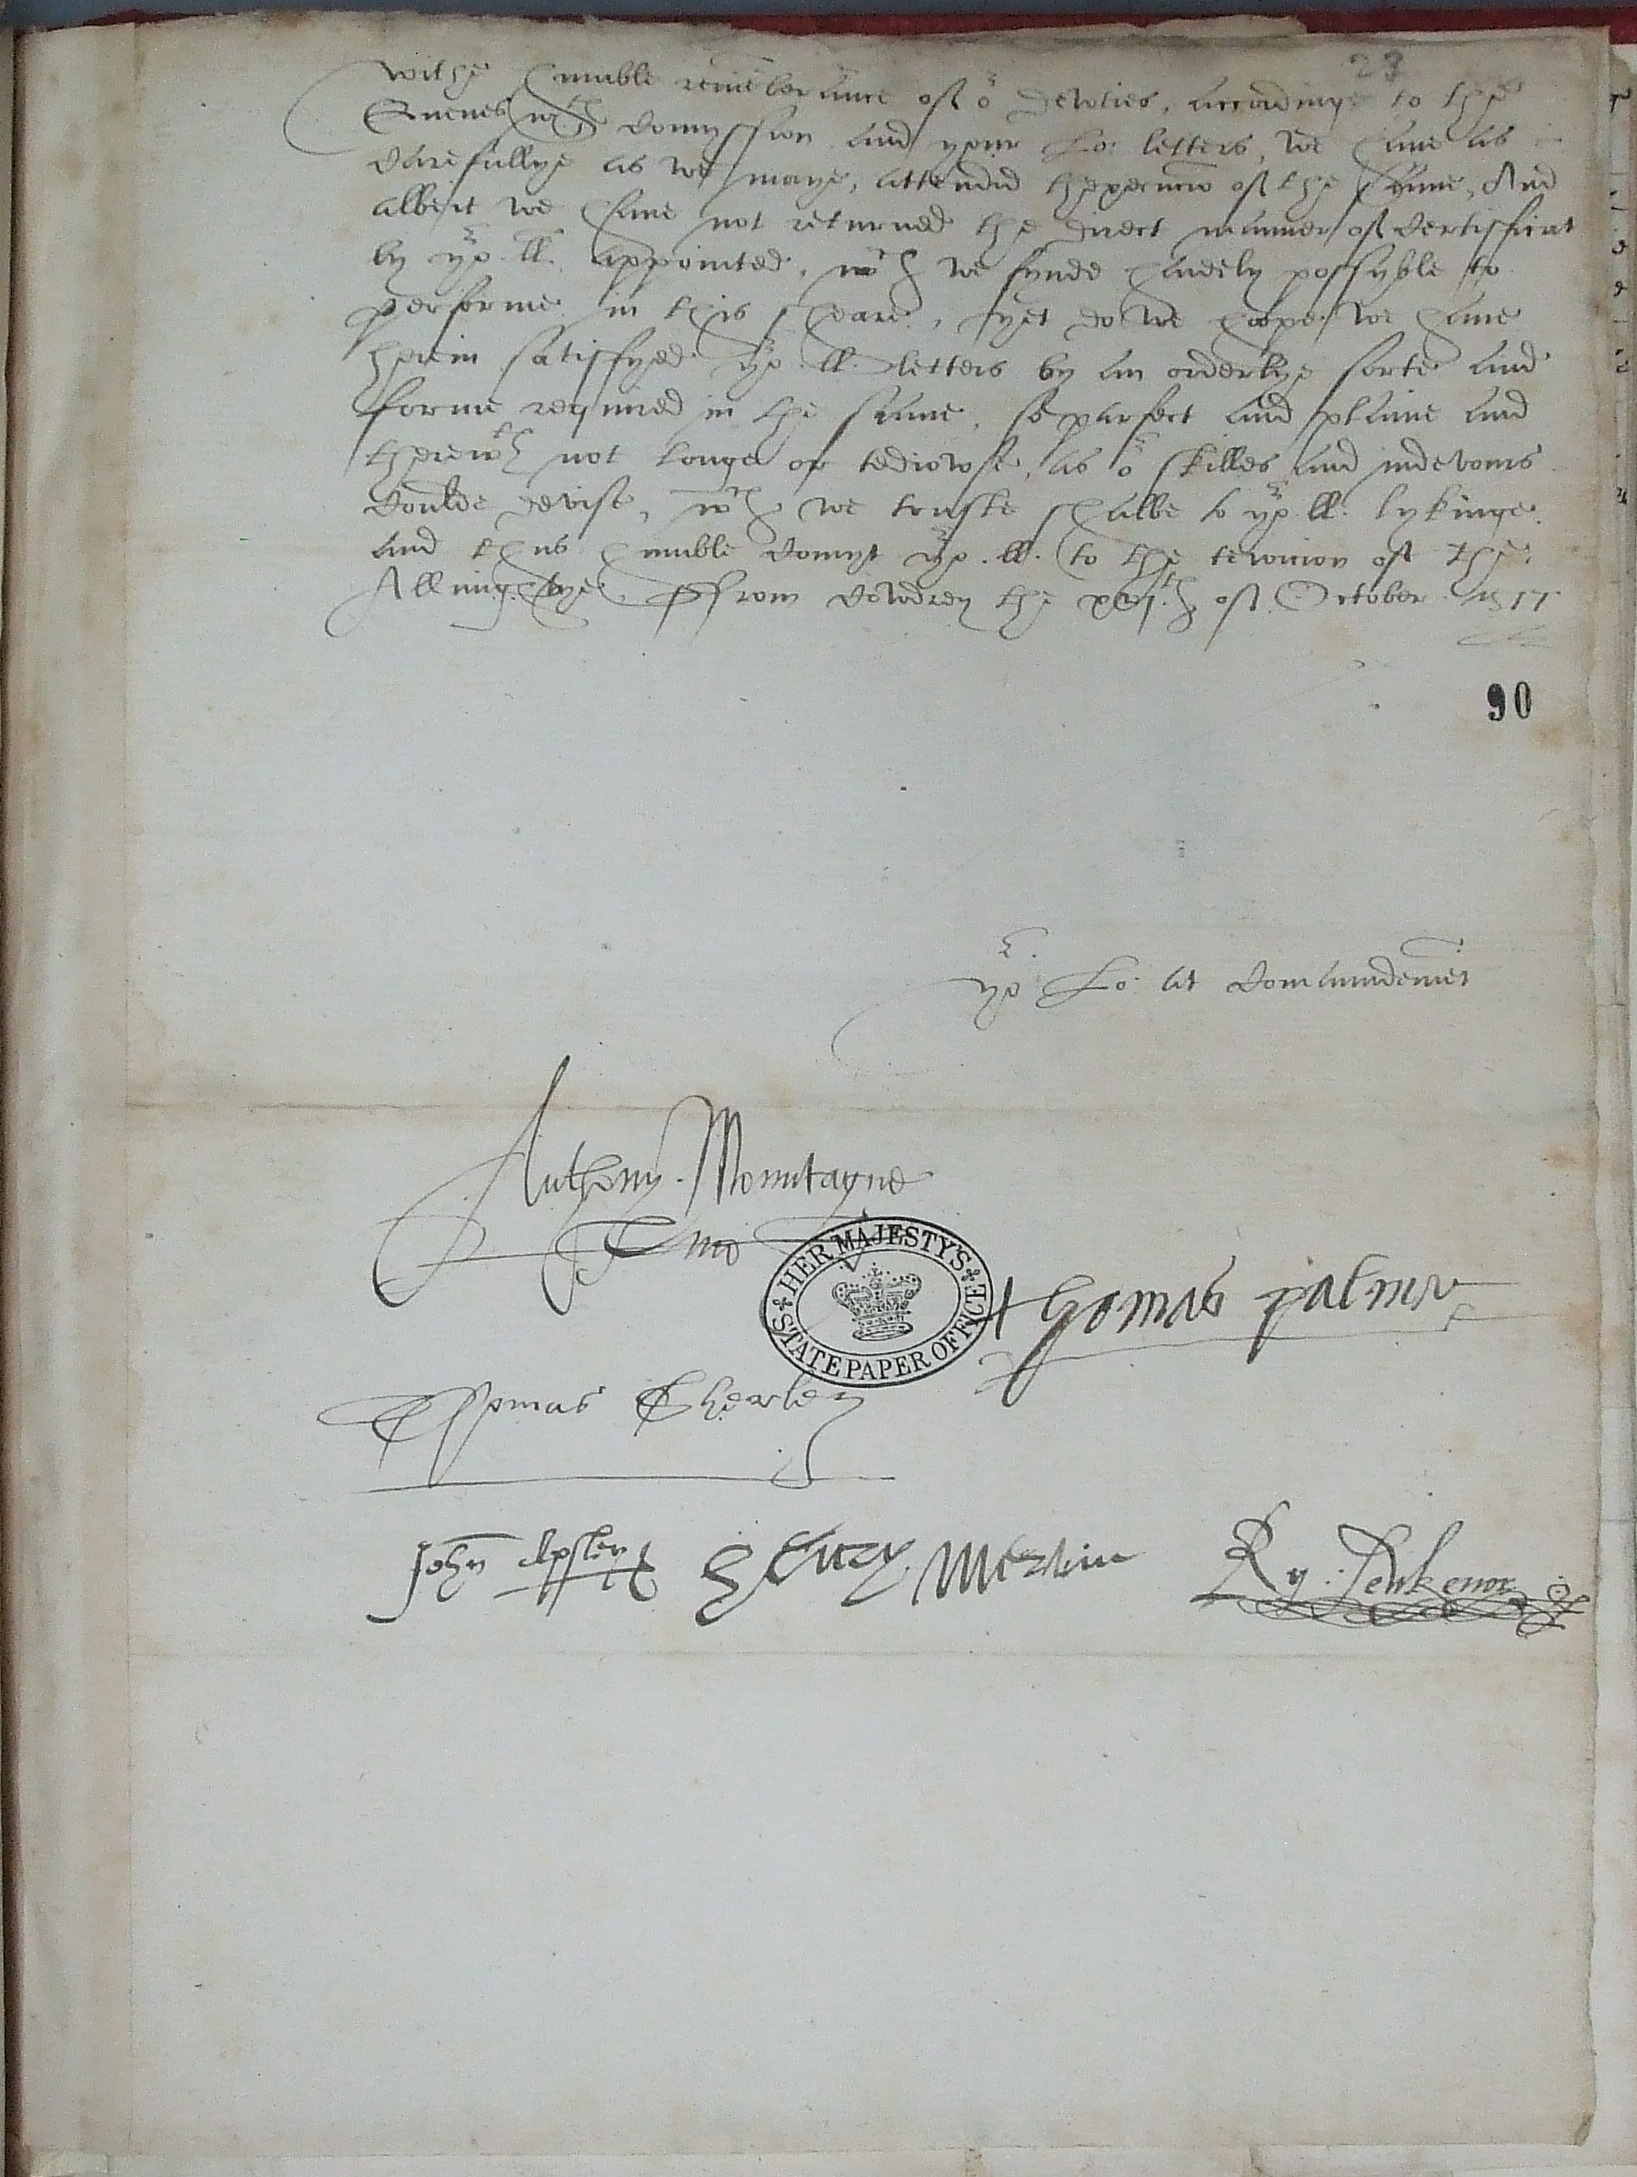 23
withe humble remēberance of or dewties, accordinge to the
Quenes mats Comyssion and your Lo: letters, we have as
Carefullye as we maye, attendid thexecucion of the same, And
albeit we have not returned the direct manner of Certifficat
by yor ll. appointed, wch we fynde hardely possyble to
performe in this sheare, yet do we hoope we have
herein satisfyed yor ll. letters by an orderlye sorte and
forme required in the same, so parfect and plaine and
therewth not longe or tediowse, as or skilles and indevours
Coulde devise, wch we truste shalbe to yor ll. lykinge
and thus humble Comyt yor ll. to the tewicion of the
Allmightye. ffrom Cowdrey the xvjth of October 1577
90
yor Lo: at Comaundemēt
Anthony Mountague
HER MAJESTY'S STATE PAPER OFFICE
Thomas palmer
Thomas Sherley
John Apsley Henry Mervin Ry: Lewkenor